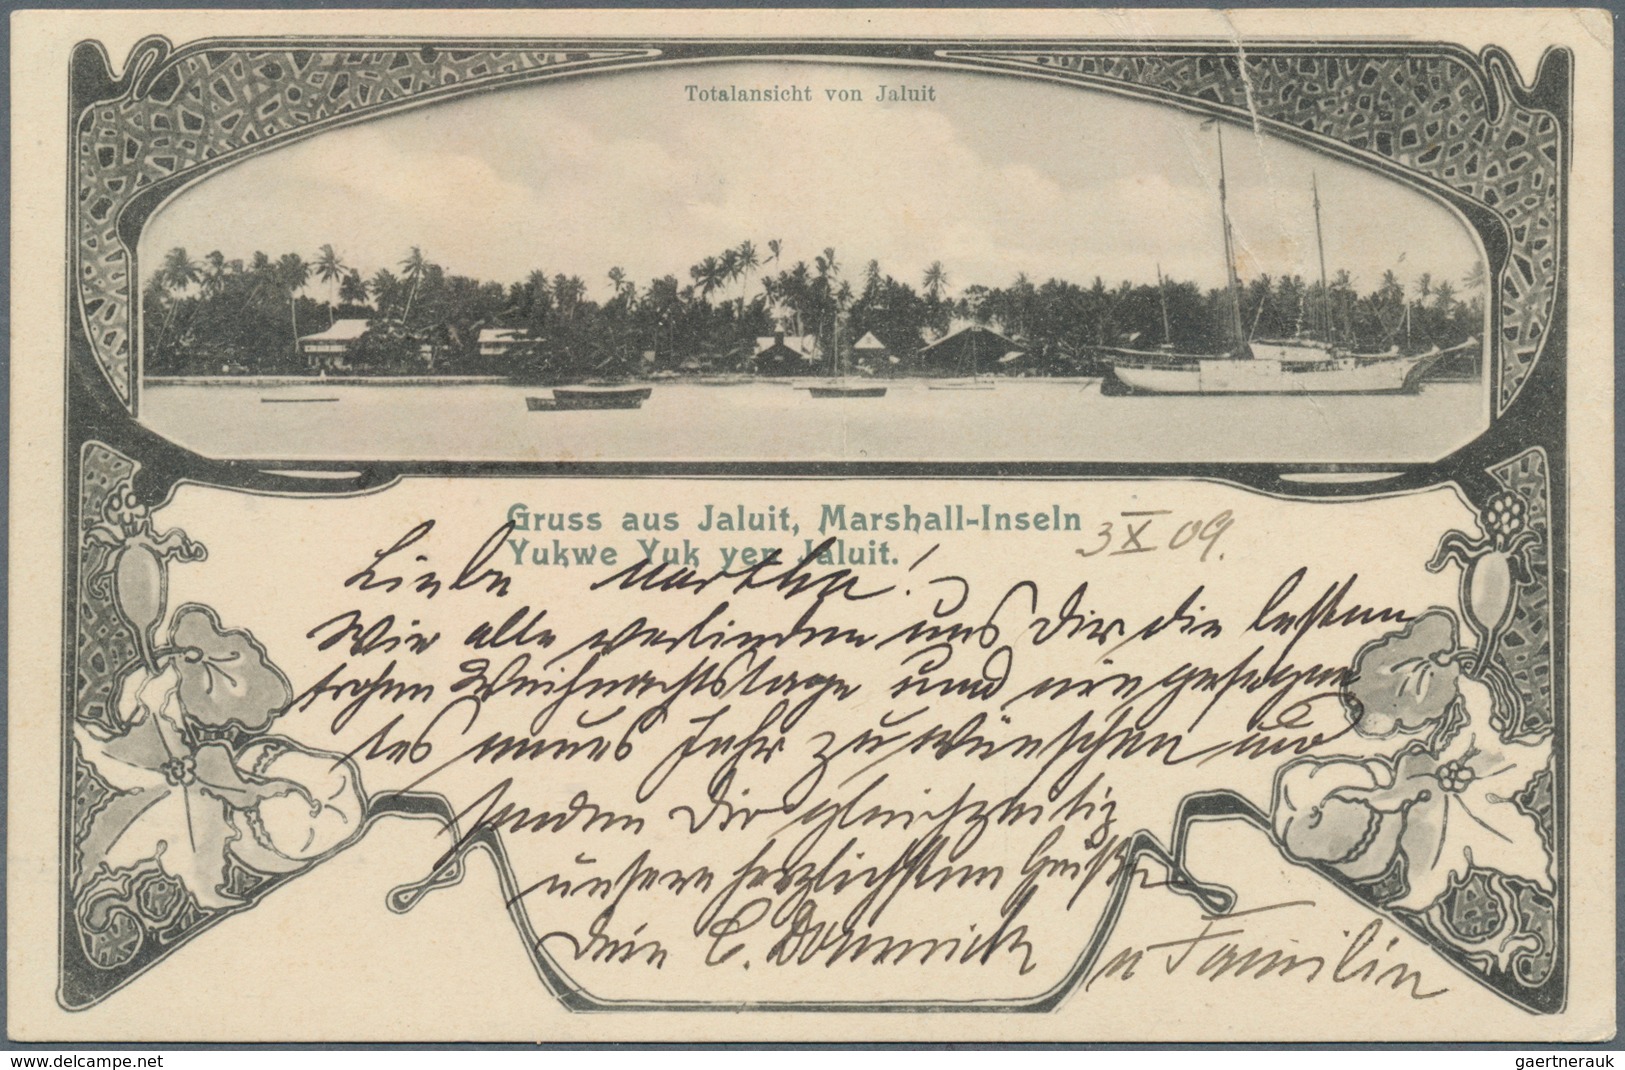 Totalansicht von Jaluit
Gruss aus Jaluit, Marshall-Inseln
Yukwe Yuk yen Jaluit.
3 X 09.
Liebe Martha!
Wir alle uns Dir die besten
frohen Weihnachtstage und ein gesegne
tes neues Jahr zu wünschen und
senden Dir gleichzeitig
unsere herzlichsten Grüße
Dein C. Domnick
u Familie
www.delcampe.net
gaertnerauk